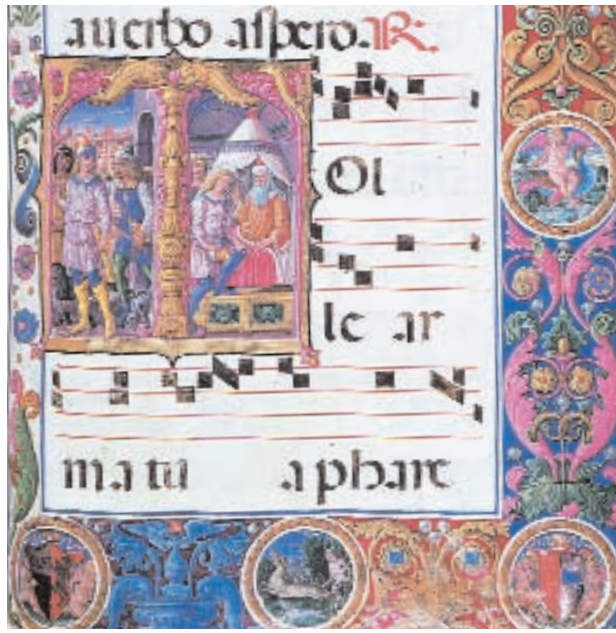 a uerbo aspero. R.
TOl
le ar
ma tu a phare